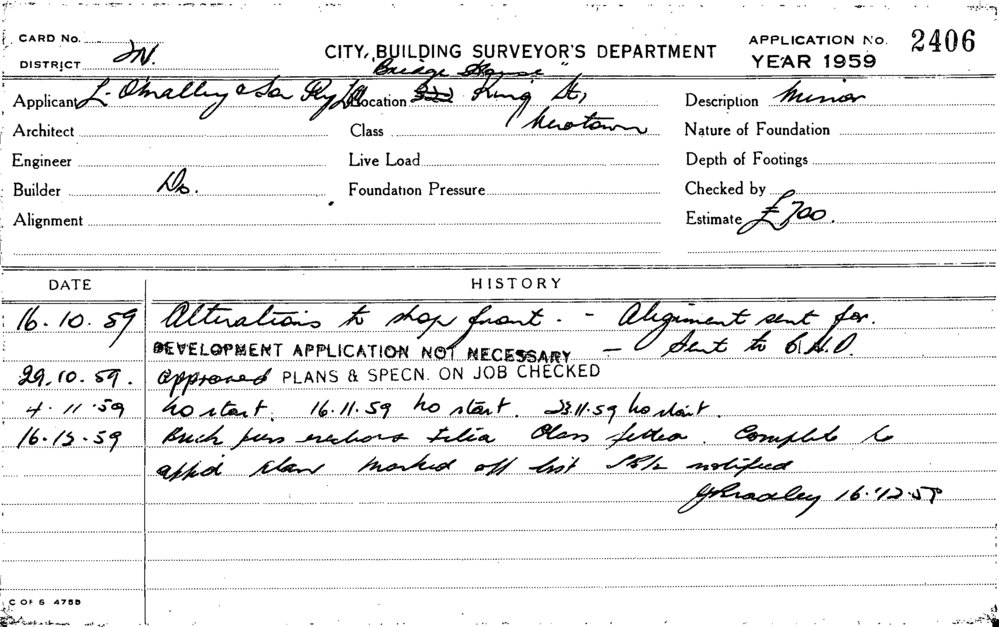 CARD No.
DISTRICT N.
CITY BUILDING SURVEYOR'S DEPARTMENT
APPLICATION No. 2406
YEAR 1959
Applicant L. O'Malley & Son Pty Ltd
"Bridge House"
Location King St,
Newtown
Description Minor
Architect
Class
Nature of Foundation
Engineer
Live Load
Depth of Footings
Builder Do.
Foundation Pressure
Checked by
Alignment
Estimate £700.
DATE
HISTORY
16.10.59 Alterations to shop front. - Alignment sent for.
DEVELOPMENT APPLICATION NOT NECESSARY - Sent to C.H.O.
29.10.59. approved PLANS & SPECN. ON JOB CHECKED
4.11.59 No start. 16.11.59 No start. 23.11.59 No start.
16.12.59 Brick piers Glass fitted. Complete to
app'd plan marked off list notified
JBradley 16.12.59
C OF S 4755